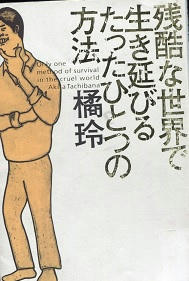 残酷な世界で
生き延びる
たったひとつの
方法
橘玲
Only one
method of survival
in the cruel world
Akira Tachibana